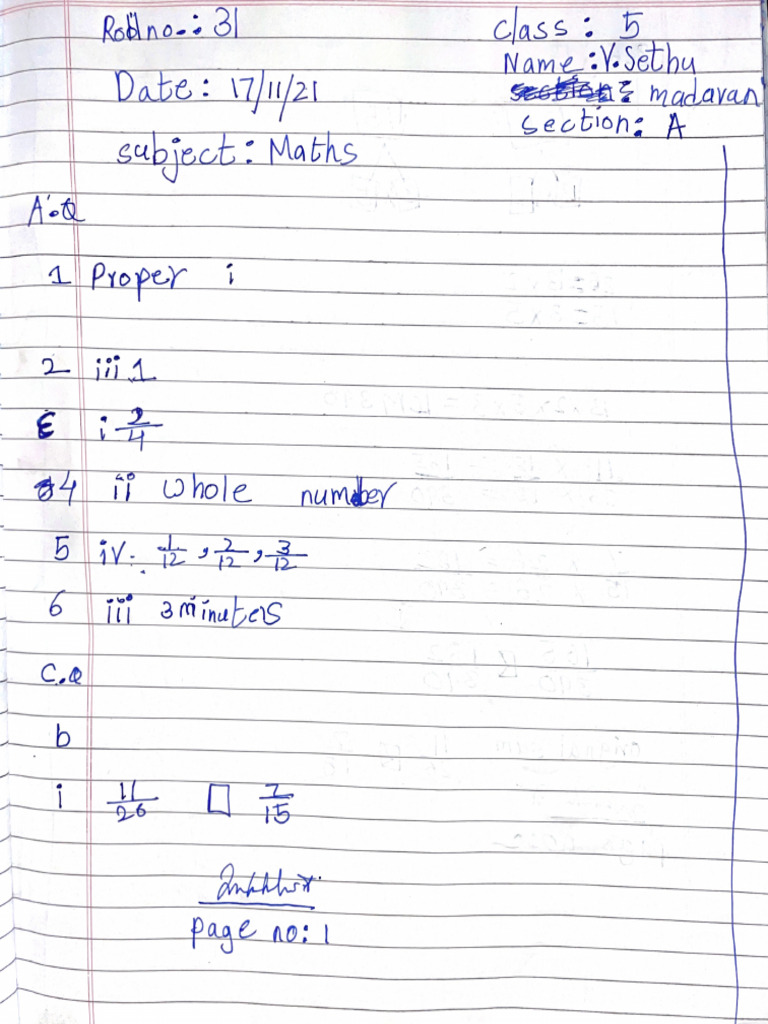 Roll no-: 31
class: 5
Name: V. Sethu
madavan
Date: 17/11/21
section: A
subject: Maths
A.Q
1 Proper i
2 iii 1
i 2/4
4 ii whole number
5 iv. 1/12, 2/12, 3/12
6 iii 3 minuters
C.Q
b
i 11/26 □ 7/15
page no: 1